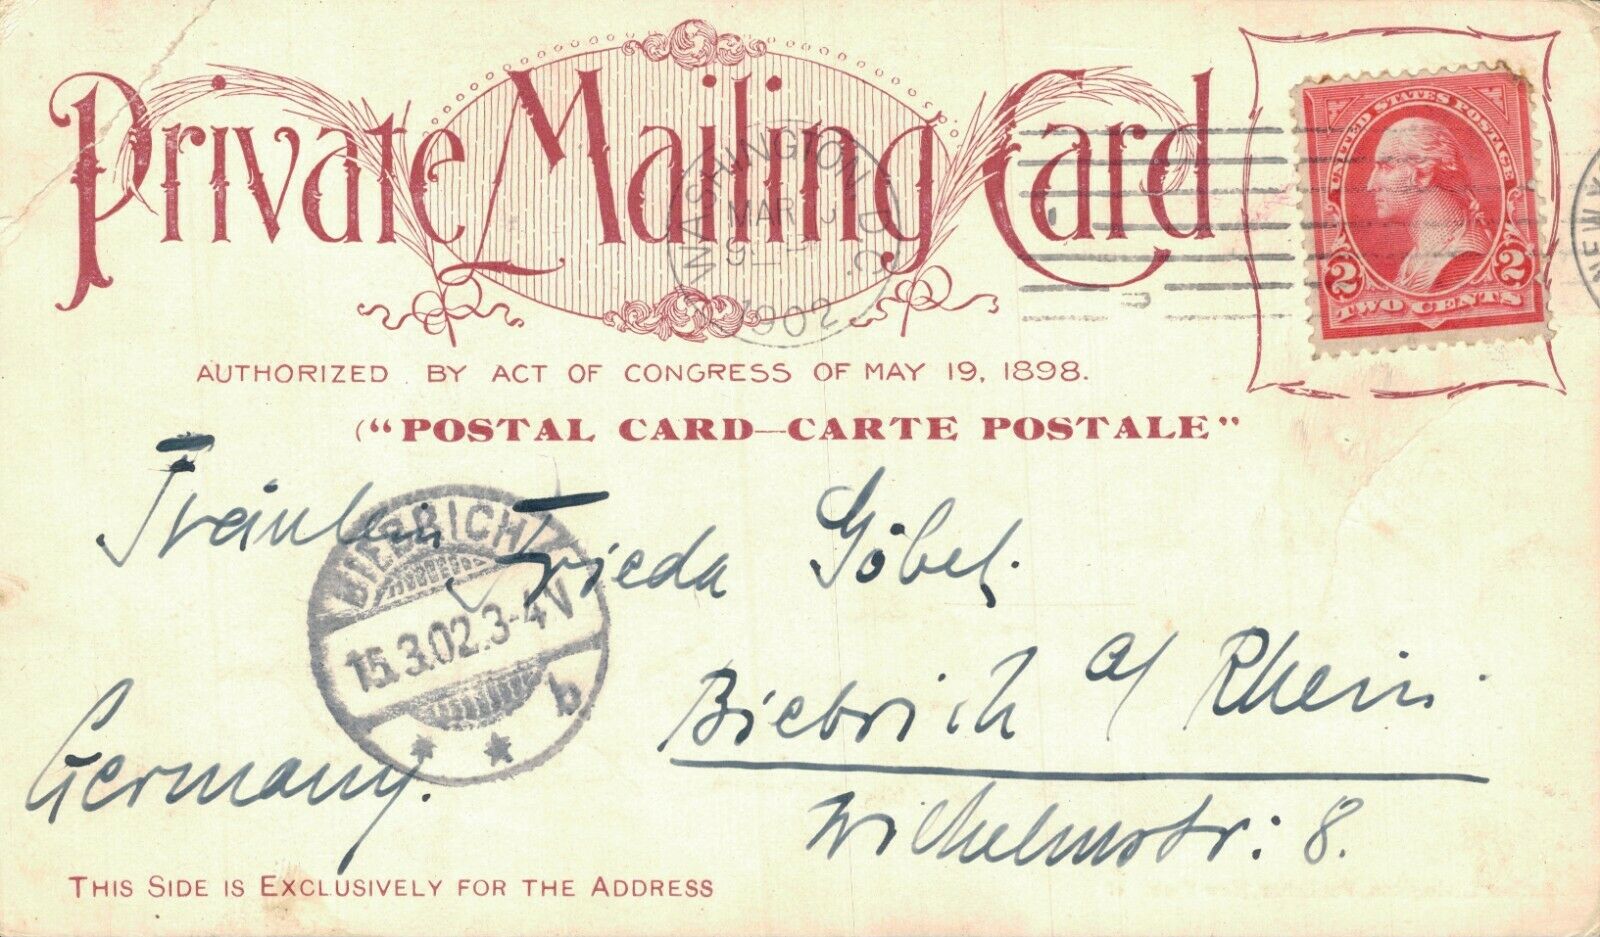 Private Mailing Card
WASHINGTON, D.C.
MAR
1902
UNITED STATES POSTAGE
2 2
TWO CENTS
NEW Y
AUTHORIZED BY ACT OF CONGRESS OF MAY 19, 1898.
("POSTAL CARD—CARTE POSTALE"
Fräulein Frieda Göbel.
BIEBRICH
15.3.02.3-4V
b.
Biebrich a/ Rhein.
Germany.
Wilhelmstr: 8.
THIS SIDE IS EXCLUSIVELY FOR THE ADDRESS